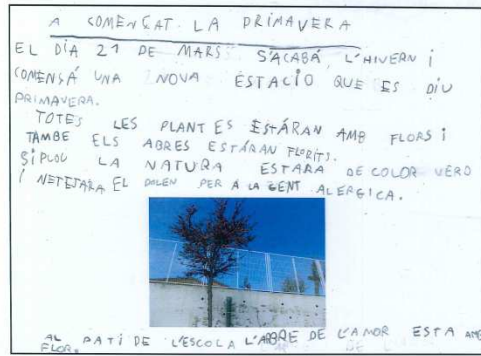 A COMENÇAT LA PRIMAVERA
EL DÍA 21 DE MARS S'ACABÁ, L'HIVERN I
COMENSÁ UNA NOVA ESTACIÓ QUE ES DIU
PRIMAVERA.
TOTES LES PLANTES ESTÁRAN AMB FLORS I
TAMBE ELS ABRES ESTÁRAN FLORITS.
SIPLOU LA NATURA ESTARA DE COLOR VERD
I NETEJARA EL POLEN PER A LA GENT ALERGICA.
AL PATI DE L'ESCOLA L'ABRE DE L'AMOR ESTA AMB
FLOR.